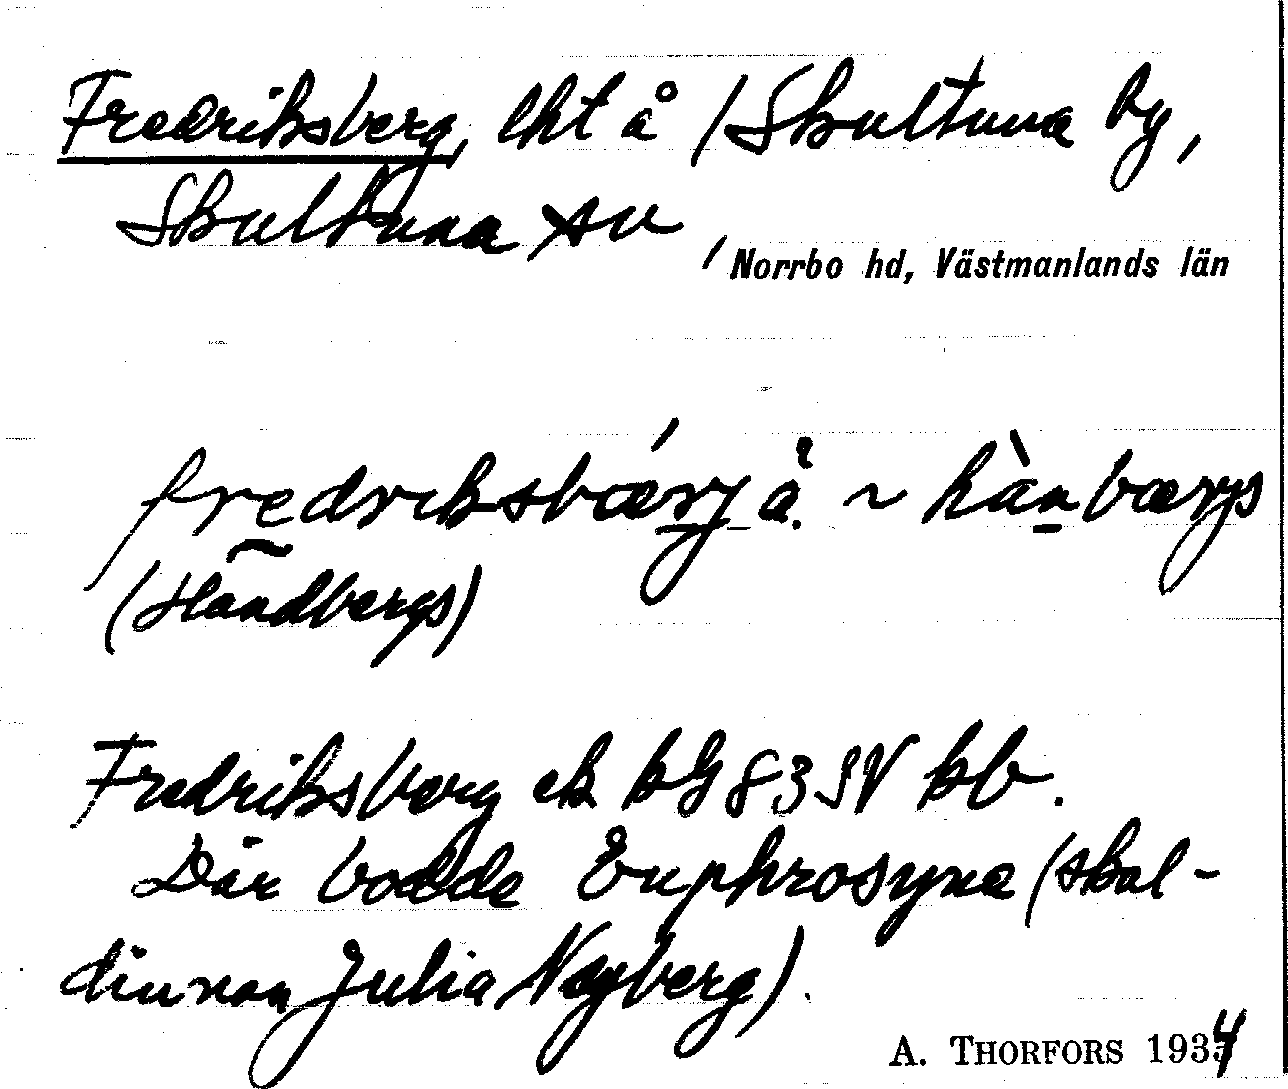 Fredriksberg, lht å / Skultuna by,
Skultuna sn
/ Norrbo hd, Västmanlands län
fredriksbærj å. ~ hànbærjs
(Handbergs)
Fredriksberg ek bG 83 SV kb.
Där bodde Euphrosyne (skal-
dinnan Julia Nyberg).
A. THORFORS 1934